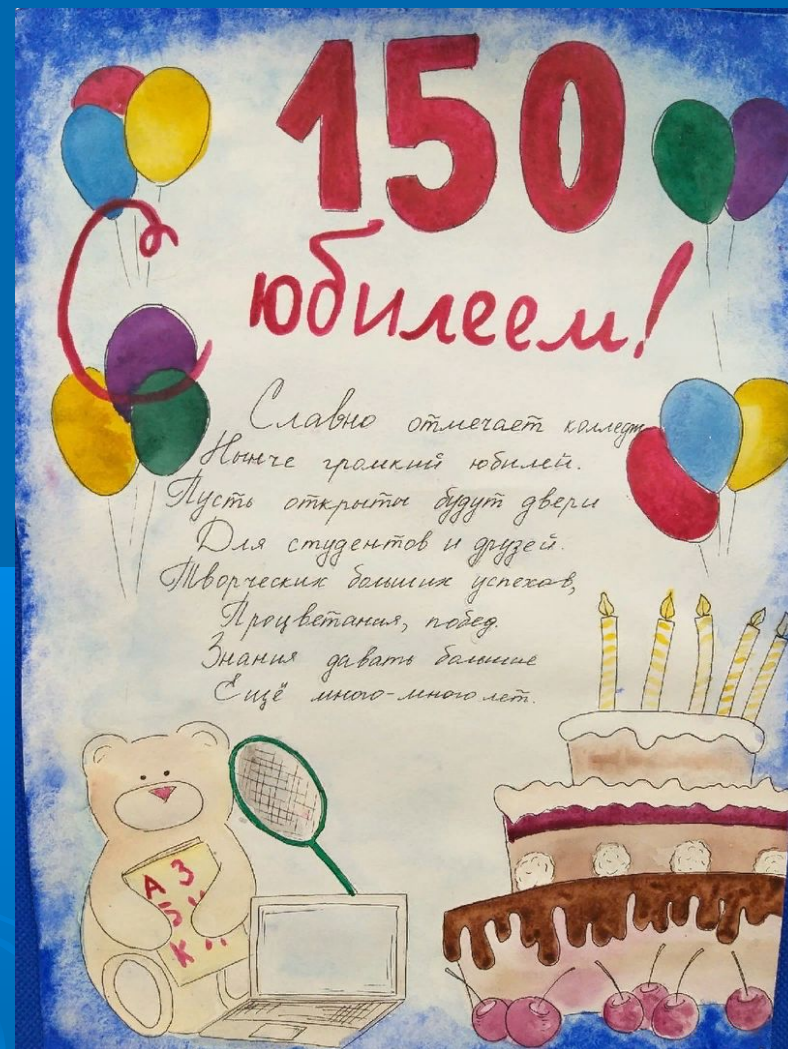 150
юбилеем!
Славно отмечает колледж
Нынче громкий юбилей.
Пусть открыты будут двери
Для студентов и друзей.
Творческих больших успехов,
Процветания, побед.
Знания давать большие
Ещё много-много лет.
А З
Б У
К